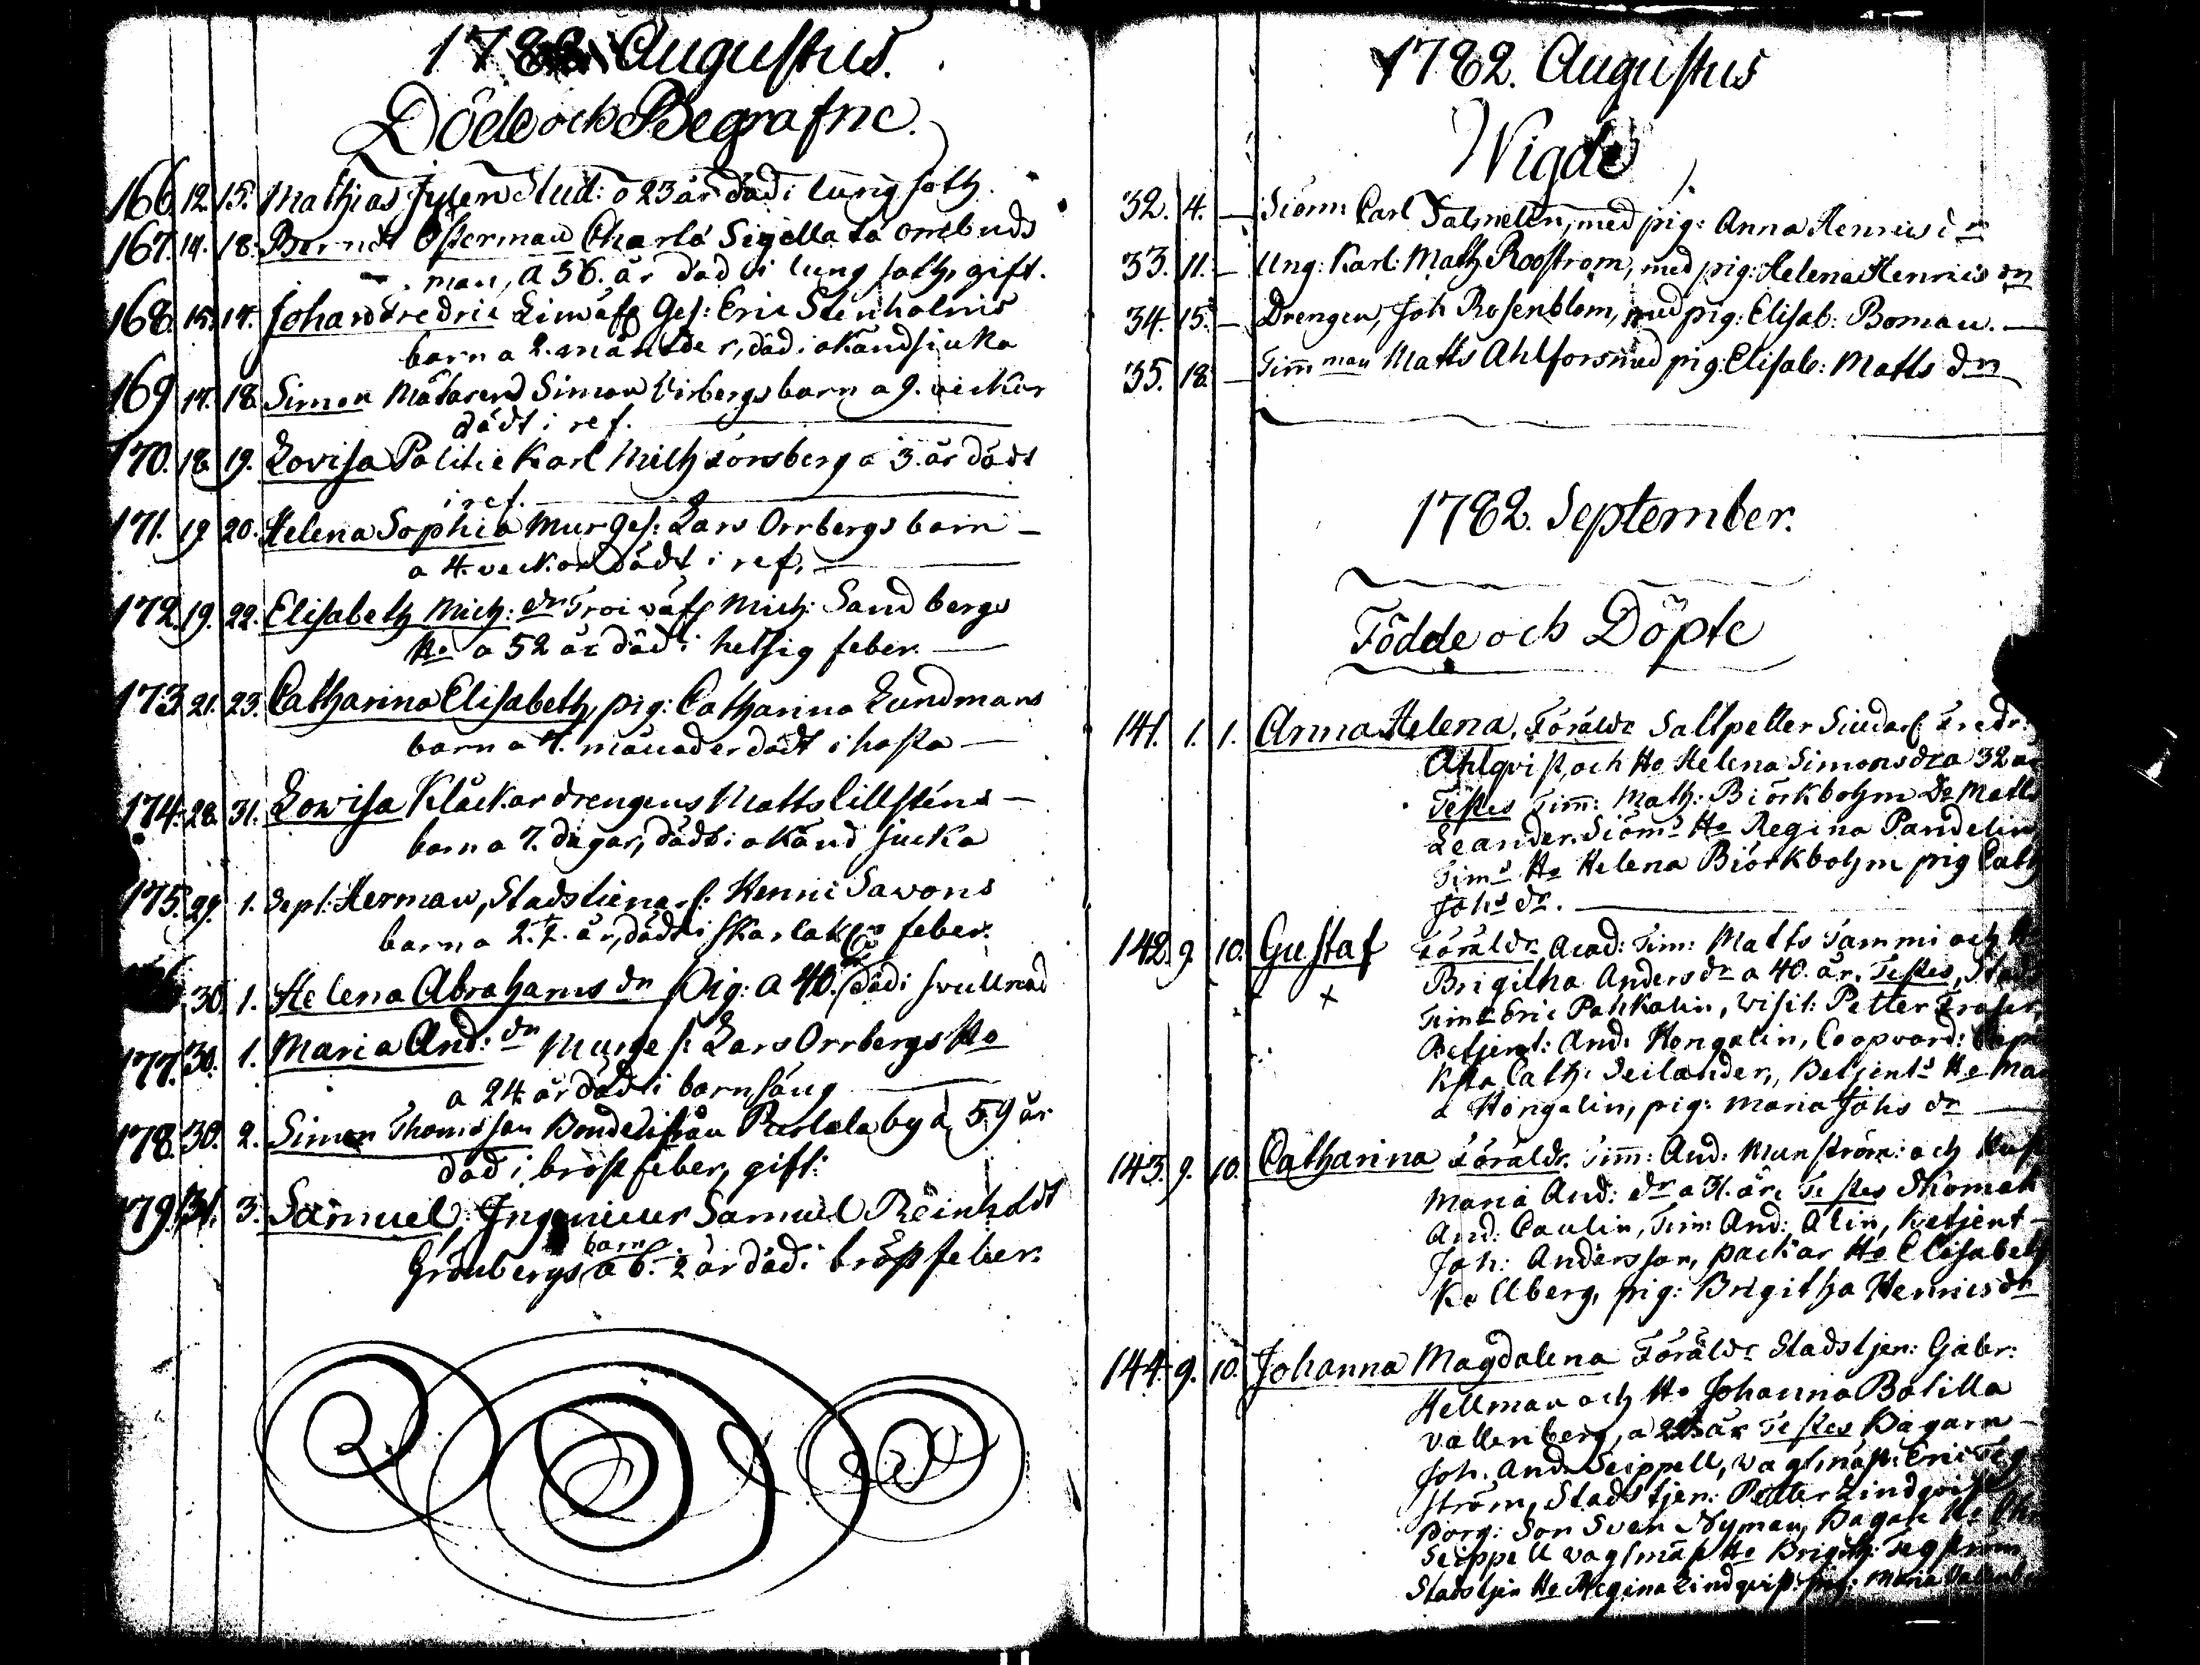 1782 Augustus.
Döde och Begrafne.
166. 12. 15. Mathias Stud: a 23 år död i lung soth.
167. 14. 18. Berndt Österman Charta Sigillata ombuds
man, a 56. år död i lung soth, gift.
168. 15. 17. Johan Fredric Ges: Eric Stenholms
barn a 2. månader, död i okänd siuka
169 17. 18. Simon Mätarens Simon barn a 9. veckor
dödt i ref.
170. 18. 19. Lovisa Politie Karl a 3. år dödt
i ref.
171. 19 20. Helena Sophia Mur Ges: Lars Orrbergs barn
a 4. veckor dödt i ref.
172. 19. 22. Elisabeth Mich: dr Mich: Sandbergs
Ho a 52 år död i hetsig feber
173 21. 23. Catharina Elisabeth, pig: Catharina Lundmans
barn a 7. månader dödt i hosta
174. 28. 31. Lowisa Klåckar drengens Matts Lillsténs
barn a 7. dagar, dödt i okänd siucka
175. 29. 1. Sept: Herman, Stadstienar: Henric Savons
barn a 2. ½. år, dödt i skarlak feber.
30. 1. Helena Abrahams dr pig: a 40. död i svullnad
177. 30. 1. Maria And: dr Murges: Lars Orrbergs Ho
a 24 år död i barnsäng
178. 30. 2. Simon Thomsson Bonde ifrån by a 59 år
död i bröst feber, gift:
179. 31. 3. Samuel, Ingenieur Samuel Reinholdt
Grönbergs barn a 6. ½ år död i bröstfeber.
1782. Augustus
Wigde
32. 4. Siöm: Carl Salmelin, med pig: Anna Henrics dr
33. 11. Ung: Karl: Math Roosstrom, med pig: Helena Henrics dr
34. 15. Drengen, Joh Rosenblom, med pig: Elisab: Boman.
35. 18. Timman Matts Ahlfors med pig: Elisab: Matts dr
1782. September.
Födde och Döpte
141. 1. 1. Anna Helena, Föräldr Saltpetter Siudar: Fredr:
Ahlqvist, och Ho Helena Simonsdr a 32 år
Testes Timm: Math: Biörkbohm Do Matts
Leander. Siöms Ho Regina Pandelin
Tims Ho Helena Biörkbohm pig Cath
Johs dr.
142. 9. 10. Gustaf Föräldr, Acad: Tim: Matts Tammi och
Brigitha Anders dr a 40. år. Testes,
Tim Eric Pahkalin, Visit: Petter Fraser,
Betjent: And: Hongelin, Coopvard:
Cath: Seilander, Betjents Ho Mari
a Hongelin, pig: Maria Johs dr
143. 9. 10. Catharina Föräldr. Timm: And: Munström: och Hust
Maria And: dr a 31. år. Testes Skomak
And: Paulin, Tim: And: Alin, Betjent
Joh: Andersson, packar Ho Elisabeth
Kellberg, pig: Brigitha Henrics dr
144. 9. 10. Johanna Magdalena Föräldr Stadstjen: Gabr:
Hellman och Ho Johanna Bolilla
Vallenberg, a år Testes Bagarn
Joh. And: Seippell, Vagtmäst: Eric Teg
ström, Stadstjen: Petter Lindqvist
Borg: Son Sven Nyman, Bagar: Ho
Seippell vagtmäst Ho Brigith: Tegström
Stadstjen Ho Regina Lindqvist: pig: Maria